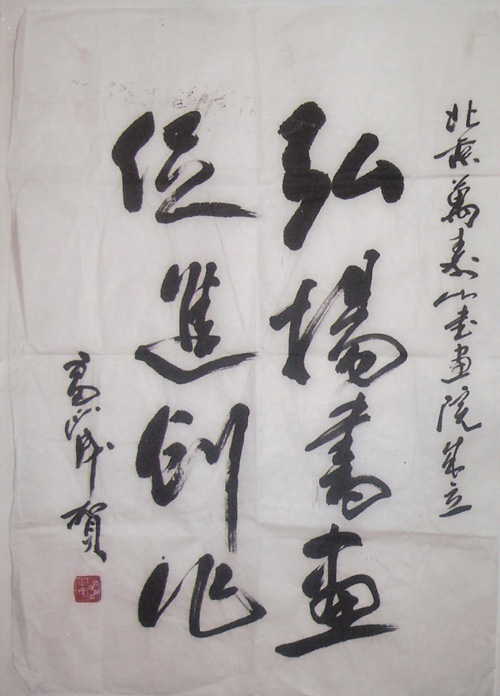 北京萬寿山书畫院成立
弘揚書畫
促進創作
賀